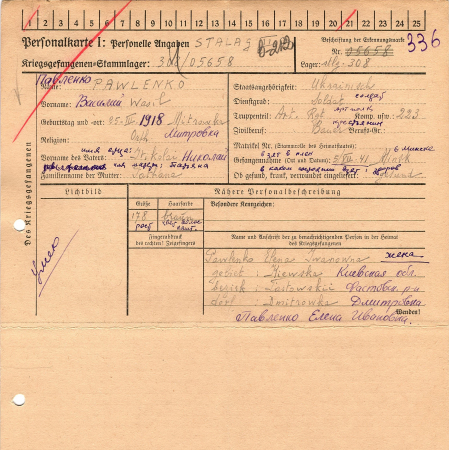 1 2 3 4 5 6 7 8 9 10 11 12 13 14 15 16 17 18 19 20 21 22 23 24 25
Personalkarte I: Personelle Angaben STALAG
Beschriftung der Erkennungsmarke
336
Kriegsgefangenen-Stammlager: 308/05658
Nr. 05658
Lager: 308
Павленко
Name: PAWLENKO
Staatsangehörigkeit: Ukrainisch
Vorname: Василий Wasil
Dienstgrad: Soldat солдат
Geburtstag und -ort: 05.III 1918 Mitrowka
Truppenteil: Art. Rgt Komp. usw.: 223
Religion: Orth. Митровка
Zivilberuf: Bauer Berufs-Gr.:
имя отца:
Matrikel Nr. (Stammrolle des Heimatstaates):
в Минске
Vorname des Vaters: Nikolai Николай
взят в плен
Gefangennahme (Ort und Datum): 41 Minsk
Familienname der Mutter: Tatjana
Татьяна
Ob gesund, krank, verwundet eingeliefert: gesund
здоров
Des Kriegsgefangenen
Lichtbild
Nähere Personalbeschreibung
Größe
Haarfarbe
Besondere Kennzeichen:
178
braun
рост
цвет волос
Fingerabdruck
des rechten! Zeigefingers
Name und Anschrift der zu benachrichtigenden Person in der Heimat
des Kriegsgefangenen
умер
Pawlenko Elena Iwanowna жена
gebiet: Kiewska Киевская обл
Fastowskii Фастовск. р-н
dorf: Dmitrowka Дмитровка
Wenden!
Павленко Елена Ивановна.